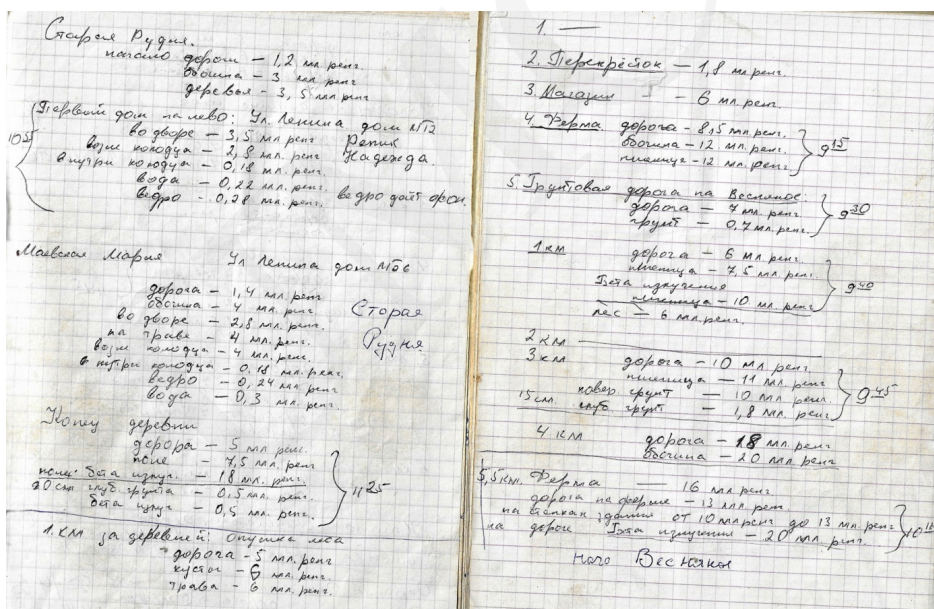 Старая Рудня.
начало дороги — 1,2 мл ренг.
обочина — 3 мл ренг
деревья — 3,5 мл ренг
Первый дом налево: Ул. Ленина дом №12
во дворе — 3,5 мл. ренг Репик
возле колодца — 2,8 мл. ренг Надежда
внутри колодца — 0,18 мл. ренг.
вода — 0,22 мл. ренг.
ведро — 0,28 мл. ренг. ведро даёт фон.
10 55
Маевская Мария Ул Ленина дом №66
дорога — 1,4 мл. ренг
обочина — 4 мл. ренг
во дворе — 2,8 мл. ренг.
на траве — 4 мл. ренг.
возле колодца — 4 мл. ренг.
внутри колодца — 0,18 мл. ренг.
ведро — 0,24 мл ренг
вода — 0,3 мл. ренг.
Сторая
Рудня
Конец деревни
дорога — 5 мл ренг.
поле — 7,5 мл. ренг
бета излуч. — 18 мл. ренг.
20 см глуб грунта — 0,5 мл. ренг.
бета излуч — 0,5 мл. ренг.
11 25
1. км за деревней: опушка леса
дорога — 5 мл. ренг
кусток — 6 мл. ренг
трава — 6 мл. ренг.
1. —
2. Перекрёсток — 1,8 мл ренг.
3. Магазин — 6 мл. ренг.
4. Ферма. дорога — 8,5 мл. ренг.
обочина — 12 мл. ренг.
пшеница — 12 мл. ренг.
9 15
5. Грунтовая дорога на Весняное:
дорога — 7 мл. ренг.
грунт — 0,7 мл. ренг.
9 30
1 км дорога — 6 мл. ренг.
пшеница — 7,5 мл. ренг.
Бета излучения
пшеница — 10 мл. ренг
лес — 6 мл. ренг.
9 40
2 км
3 км дорога — 10 мл ренг.
пшеница — 11 мл. ренг
повер. грунт — 10 мл. ренг.
15 см. глуб грунт — 1,8 мл. ренг
9 45
4 км дорога — 18 мл. ренг
обочина — 20 мл. ренг
5,5 км. Ферма — 16 мл. ренг
дорога на ферме — 13 мл. ренг.
на стенках здания от 10 мл ренг до 13 мл. ренг
на дороге Бета излучения — 20 мл. ренг.
10 10
Весняны